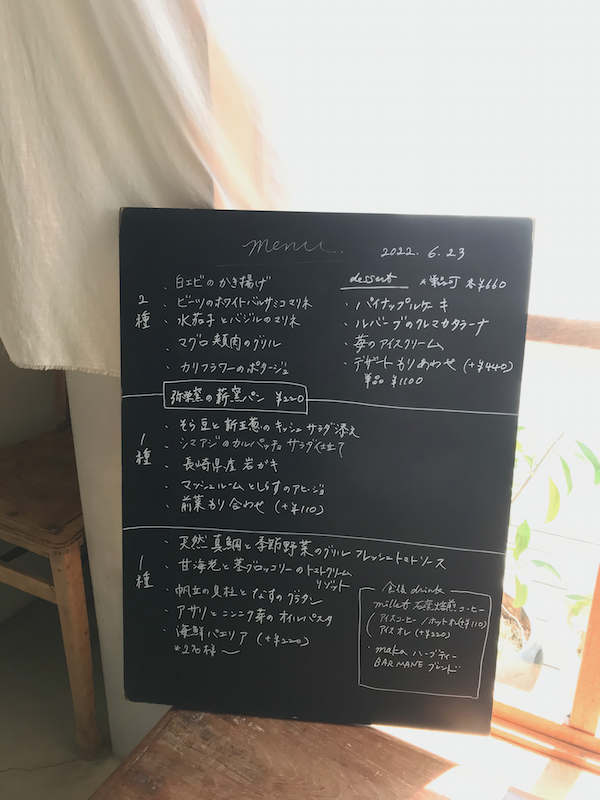 menu
2022. 6. 23
2種
・白エビのかき揚げ
・ビーツのホワイトバルサミコマリネ
・水茄子とバジルのマリネ
・マグロ頬肉のグリル
・カリフラワーのポタージュ
dessert ※単品可 各¥660
・パイナップルケーキ
・ルバーブのクレマカタラーナ
・苺のアイスクリーム
・デザートもりあわせ (+¥440)
単品 ¥1100
弥栄窯の薪窯パン ¥220
1種
・そら豆と新玉葱のキッシュ サラダ添え
・シマアジのカルパッチョ サラダ仕立て
・長崎県産 岩ガキ
・マッシュルームとしらすのアヒージョ
・前菜もり合わせ (+¥110)
1種
・天然真鯛と季節野菜のグリル フレッシュトマトソース
・甘海老と茎ブロッコリーのトマトクリーム
リゾット
・帆立の貝柱となすのグラタン
・アサリとニンニク芽のオイルパスタ
・海鮮パエリア (+¥220)
*2名様〜
食後 drink
・millet 石窯焙煎コーヒー
(アイスコーヒー/ホットオレ(+¥110)
アイスオレ (+¥220)
・maka ハーブティー
BAR MANE ブレンド